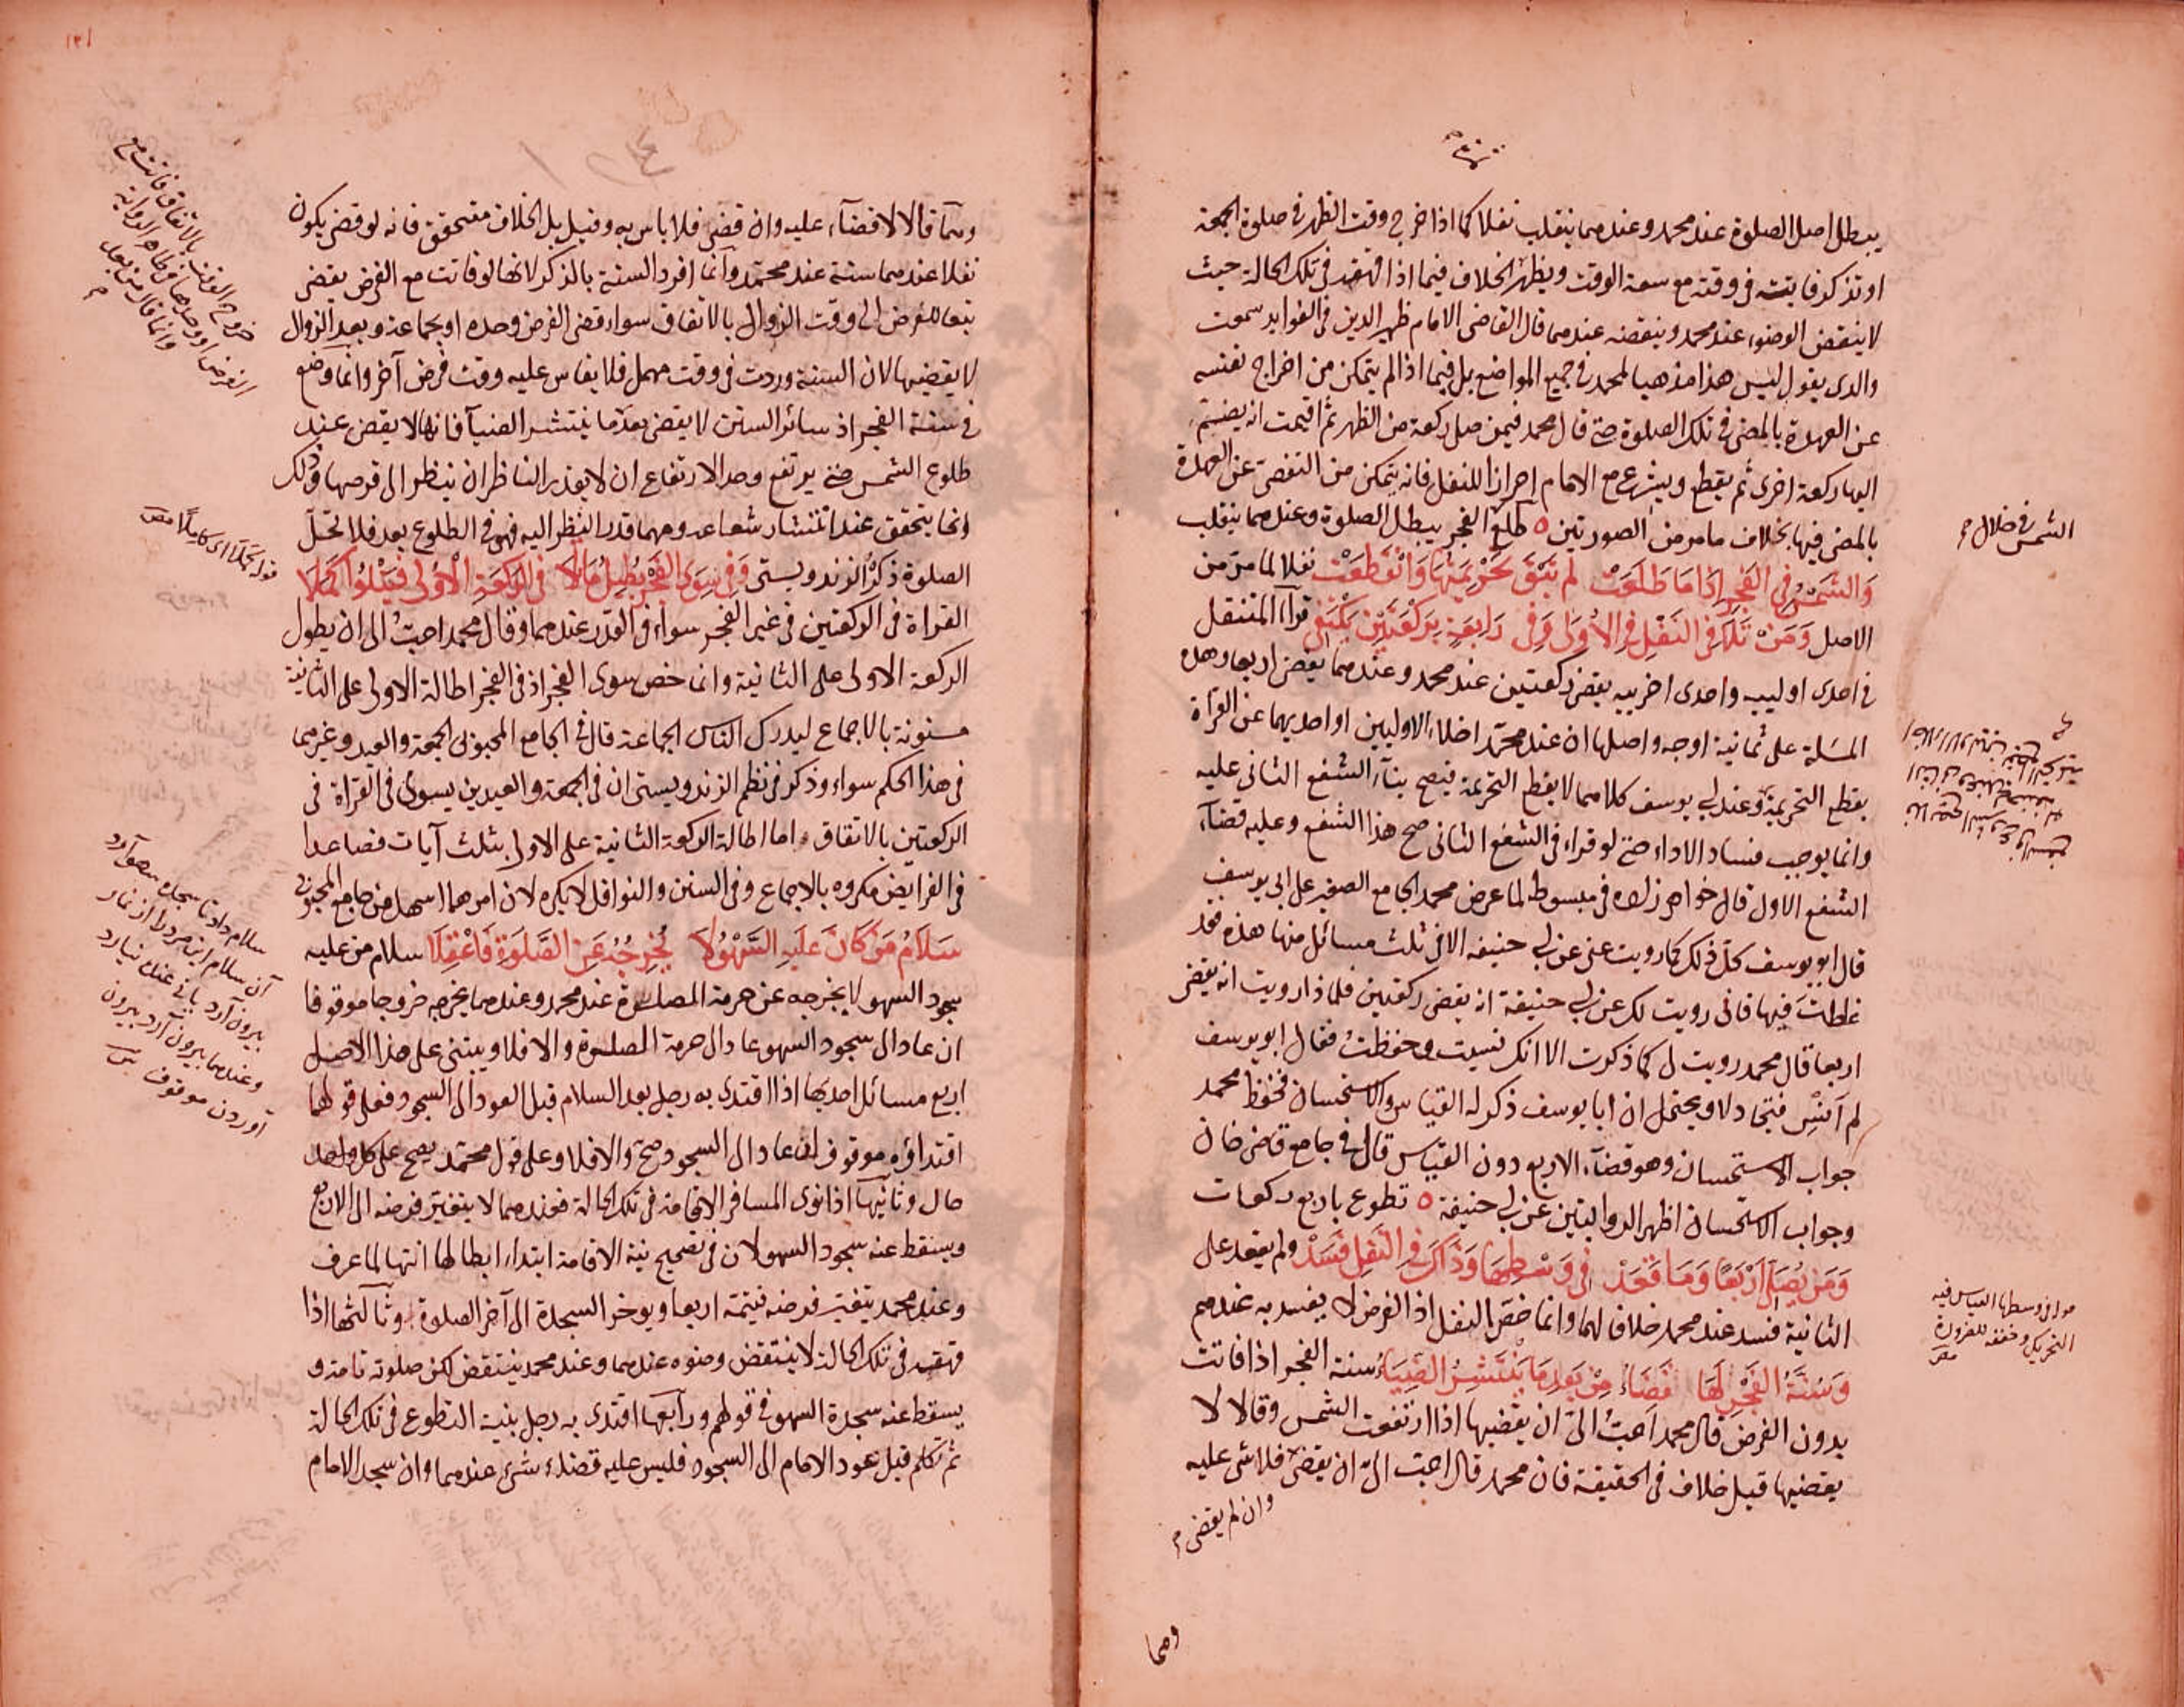 يبطل اصل الصلوة عند محمد وعندهما ينقلب نفلا كما اذا خرج وقت الظهر في صلوة الجمعة
او تذكر فايتة في وقته مع سعة الوقت ويظهر الخلاف فيما اذا قهقه في تلك الحالة حيث
لا ينتقض الوضوء عند محمد وينقضه عندهما قال القاضي الامام ظهير الدين في الفوايد سمعت
والدي يقول ليس هذا مذهبا لمحمد في جميع المواضع بل فيما اذا لم يتمكن من اخراج نفسه
عن العهدة بالمضي في تلك الصلوة حتى قال محمد فيمن صلى ركعة من الظهر ثم اقيمت انه يضم
اليها ركعة اخرى ثم يقطع ويشرع مع الامام احرازا للنفل فانه يتمكن من التفصي عن العهدة
بالمضي فيها بخلاف ما مر من الصورتين ه طلوع الفجر يبطل الصلوة وعندهما ينقلب
وَالشمس في الفجر اذا ما طلعت لم تبق تحريمتها وانقطعت نفلا لما مر من
الاصل ومن تلا في النفل في الاولى وفي رابعة بركعتين يكتفي قرأ المتنفل
في احدى اولييه واحدى اخرييه يقضي ركعتين عند محمد وعندهما يقضي اربعا وهذه
المسئلة على ثمانية اوجه واصلها ان عند محمد اخلاء الاوليين او احديهما عن القرأة
يقطع التحريمة وعند ابي يوسف كلاهما لا يقطع التحريمة فيصح بناء الشفع الثاني عليه
وانما يوجب فساد الاداء حتى لو قراء في الشفع الثاني صح هذا الشفع وعليه قضاء
الشفع الاول قال خواهر زاده في مبسوطه لما عرض محمد الجامع الصغير على ابي يوسف
قال ابو يوسف كل ذلك كما رويت عني عن ابي حنيفه الا في ثلث مسائل منها هذه فقد
غلطت فيها فاني رويت لك عن ابي حنيفة انه يقضي ركعتين فلماذا رويت انه يقضي
اربعا قال محمد رويت لي كما ذكرت الا انك نسيت وحفظت فقال ابو يوسف
لم انس فتجادلا ويحتمل ان ابا يوسف ذكر له القياس والاستحسان فحفظ محمد
جواب الاستحسان وهو قضاء الاربع دون القياس قال في جامع قاضي خان
وجواب الاستحسان اظهر الروايتين عن ابي حنيفة ه تطوع باربع ركعات
ومن يصل اربعا وما قعد في وسطها وذاك في النفل فسد ولم يقعد على
الثانية فسد عند محمد خلافا لهما وانما خص بالنفل اذ الفرض لا يفسد به عندهم
وسنة الفجر لها قضاء من بعد ما ينتشر الضياء سنة الفجر اذا فاتت
بدون الفرض قال محمد احب الي ان يقضيها اذا ارتفعت الشمس وقالا لا
يقضيها قيل خلاف في الحقيقة فان محمد قال احب الي ان يقضي فلا شي عليه
وان لم يقضي
وهما
الشمس في خلال
في وسطها القياس فيه
التحريك وخففه للضرورة
وهما قالا لا قضاء عليه وان قضى فلا باس به وقيل بل الخلاف متحقق فانه لو قضي يكون
نفلا عندهما سنة عند محمد وانما افرد السنة بالذكر لانها لو فاتت مع الفرض يقضي
تبعا للفرض الى وقت الزوال بالاتفاق سواء قضى الفرض وحده او بجماعة وبعد الزوال
لا يقضيها لان السنة وردت في وقت مهمل فلا يقاس عليه وقت فرض آخر وانما وضع
في سنة الفجر اذ سائر السنن لا يقضي بعد ما ينتشر الضيا فانها لا يقضي عند
طلوع الشمس حتى يرتفع وحد الارتفاع ان لا يقدر الناظر ان ينظر الى قرصها وذلك
انما يتحقق عند انتشار شعاعه ومهما قدر النظر اليه فهو في الطلوع بعد فلا تحل
الصلوة ذكره الزندويستي وفي سوى الفجر يطيل ما تلا في الركعة الاولى فيتلوا كملا
القراة في الركعتين في غير الفجر سواء في القدر عندهما وقال محمد احب الي ان يطول
الركعة الاولى على الثانية وانما خص سوى الفجر اذ في الفجر اطالة الاولى على الثانية
مسنونة بالاجماع ليدرك الناس الجماعة قال في الجامع المحبوبي الجمعة والعيد وغيرهما
في هذا الحكم سواء وذكر في نظم الزندويستي ان في الجمعة والعيدين يسوي في القراة في
الركعتين بالاتفاق اما اطالة الركعة الثانية على الاولى بثلث آيات فصاعدا
في الفرايض مكروه بالاجماع وفي السنن والنوافل لا يكره لان امرهما اسهل من جامع المحبوبي
سلام من كان عليه السهو لا يخرجه عن الصلوة فاعقلا سلام من عليه
سجود السهو لا يخرجه عن حرمة الصلوة عند محمد وعندهما يخرجه خروجا موقوفا
ان عاد الى سجود السهو عاد الى حرمة الصلوة والا فلا ويبتني على هذا الاصل
اربع مسائل احديها اذا اقتدى به رجل بعد السلام قبل العود الى السجود فعلى قولهما
اقتداؤه موقوف ان عاد الى السجود صح والا فلا وعلى قول محمد يصح على كل
حال وثانيها اذا نوى المسافر الاقامة في تلك الحالة فعندهما لا يتغير فرضه الى الاربع
ويسقط عنه سجود السهو لان في تصحيح نية الاقامة ابتداء ابطالها انتها لما عرف
وعند محمد يتغير فرضه فيتمه اربعا ويوخر السجدة الى آخر الصلوة وثالثها اذا
قهقه في تلك الحالة لا ينتقض وضوه عندهما وعند محمد ينتقض لكن صلوته تامة و
يسقط عنه سجدة السهو في قولهم ورابعها اقتدى به رجل بنية التطوع في تلك الحالة
ثم تكلم قبل عود الامام الى السجود فليس عليه قضاء شيء عندهما وان سجد الامام
قوله كملا اي كاملا
سلام داد تا سجده سهو آرد
آن سلام اين مرد را از نماز
بيرون آرد ياني عنده نيارد
وعندهما بيرون آرد بيرون
آوردن موقوف